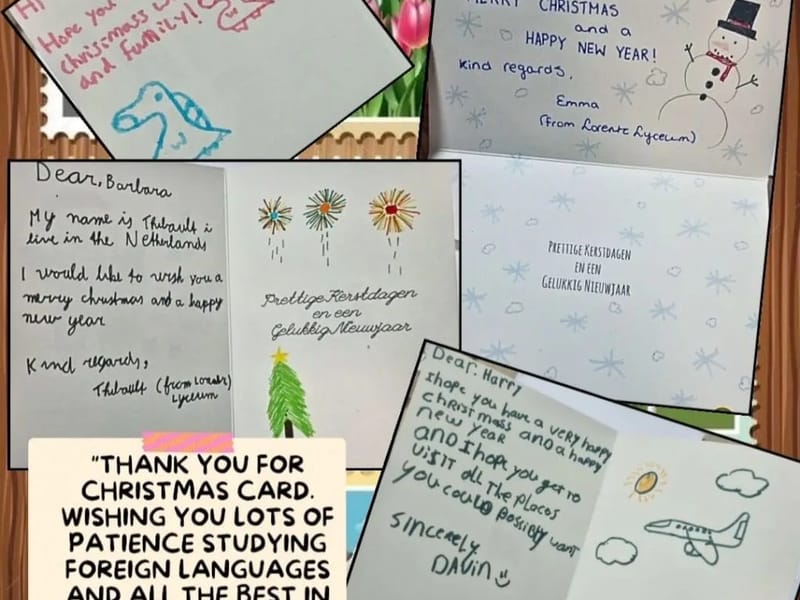 Hi
Hope you
christmass
and family!
MERRY CHRISTMAS
and a
HAPPY NEW YEAR!
kind regards,
Emma
(from Lorentz Lyceum)
PRETTIGE KERSTDAGEN
EN EEN
GELUKKIG NIEUWJAAR
Dear, Barbara
My name is Thibault i
live in the Netherlands
I would like to wish you a
merry christmas and a happy
new year
Kind regards,
Thibault (from
Lyceum
Prettige Kerstdagen
en een
Gelukkig Nieuwjaar
Dear. Harry
I hope you have a very happy
christmass and a happy
new year
and I hope you get to
visit all the places
you could possibly want
sincerely
DAvin
"THANK YOU FOR
CHRISTMAS CARD.
WISHING YOU LOTS OF
PATIENCE STUDYING
FOREIGN LANGUAGES
AND ALL THE BEST IN